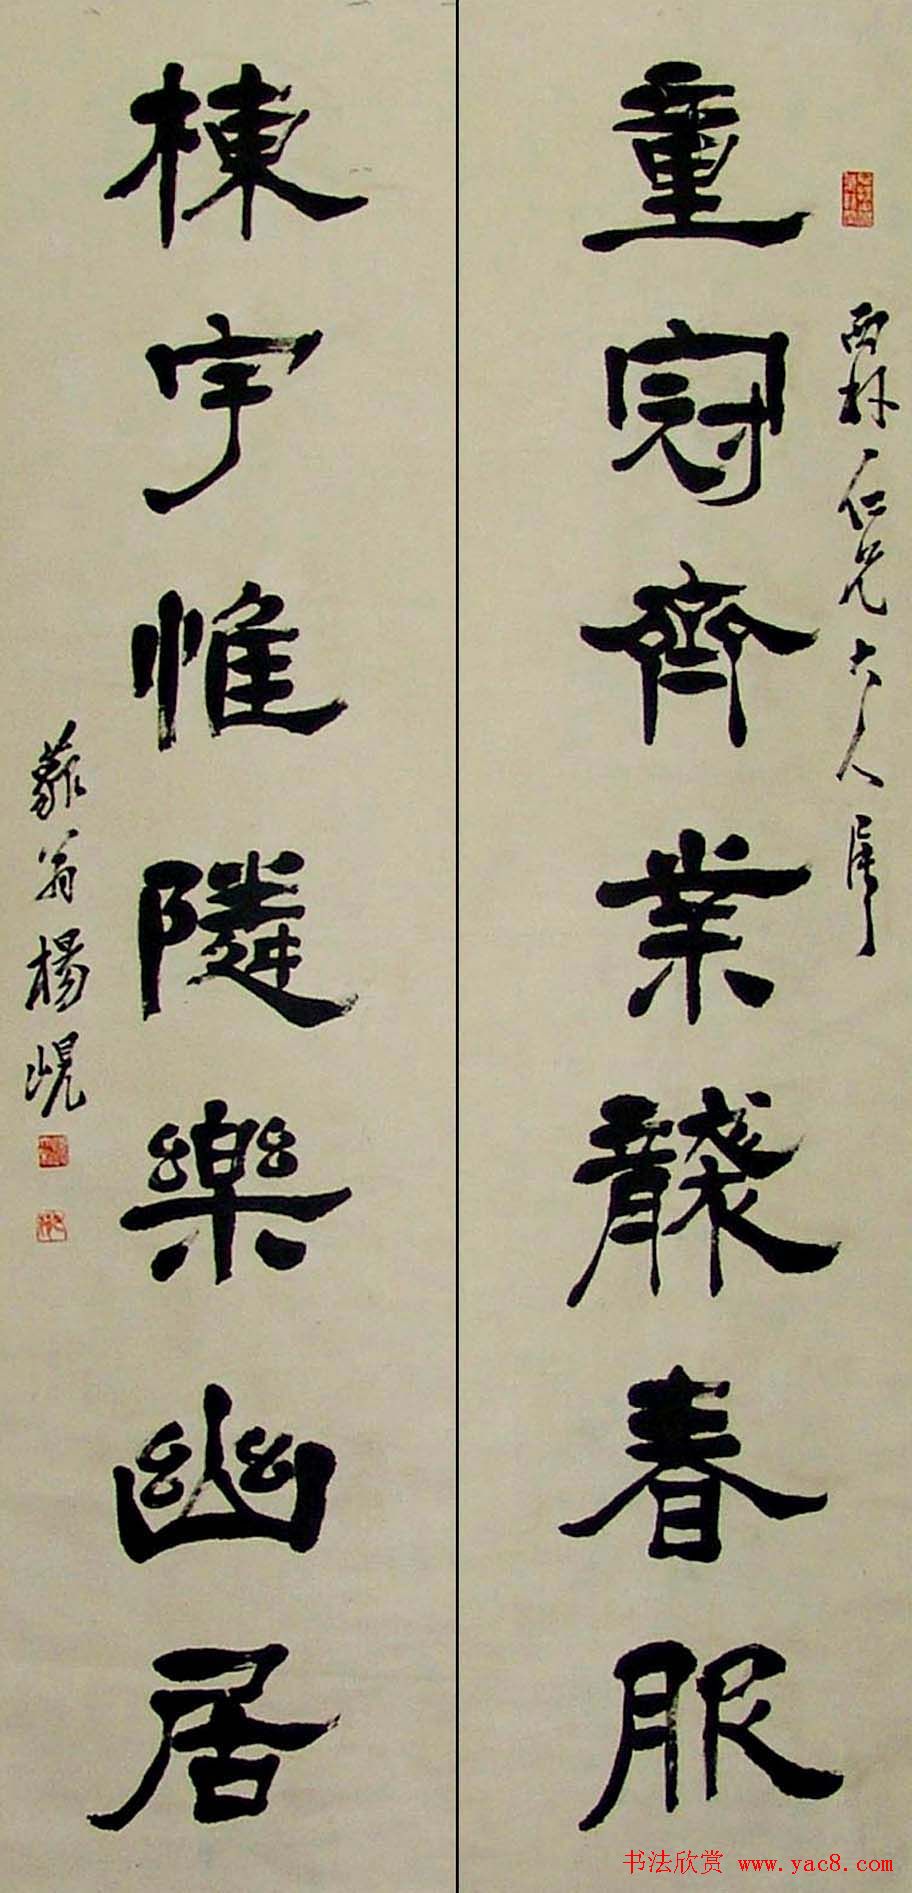 西林仁兄大人屬
童冠齊業襲春服
棟宇惟隣樂幽居
藐翁楊峴
书法欣赏 www.yac8.com